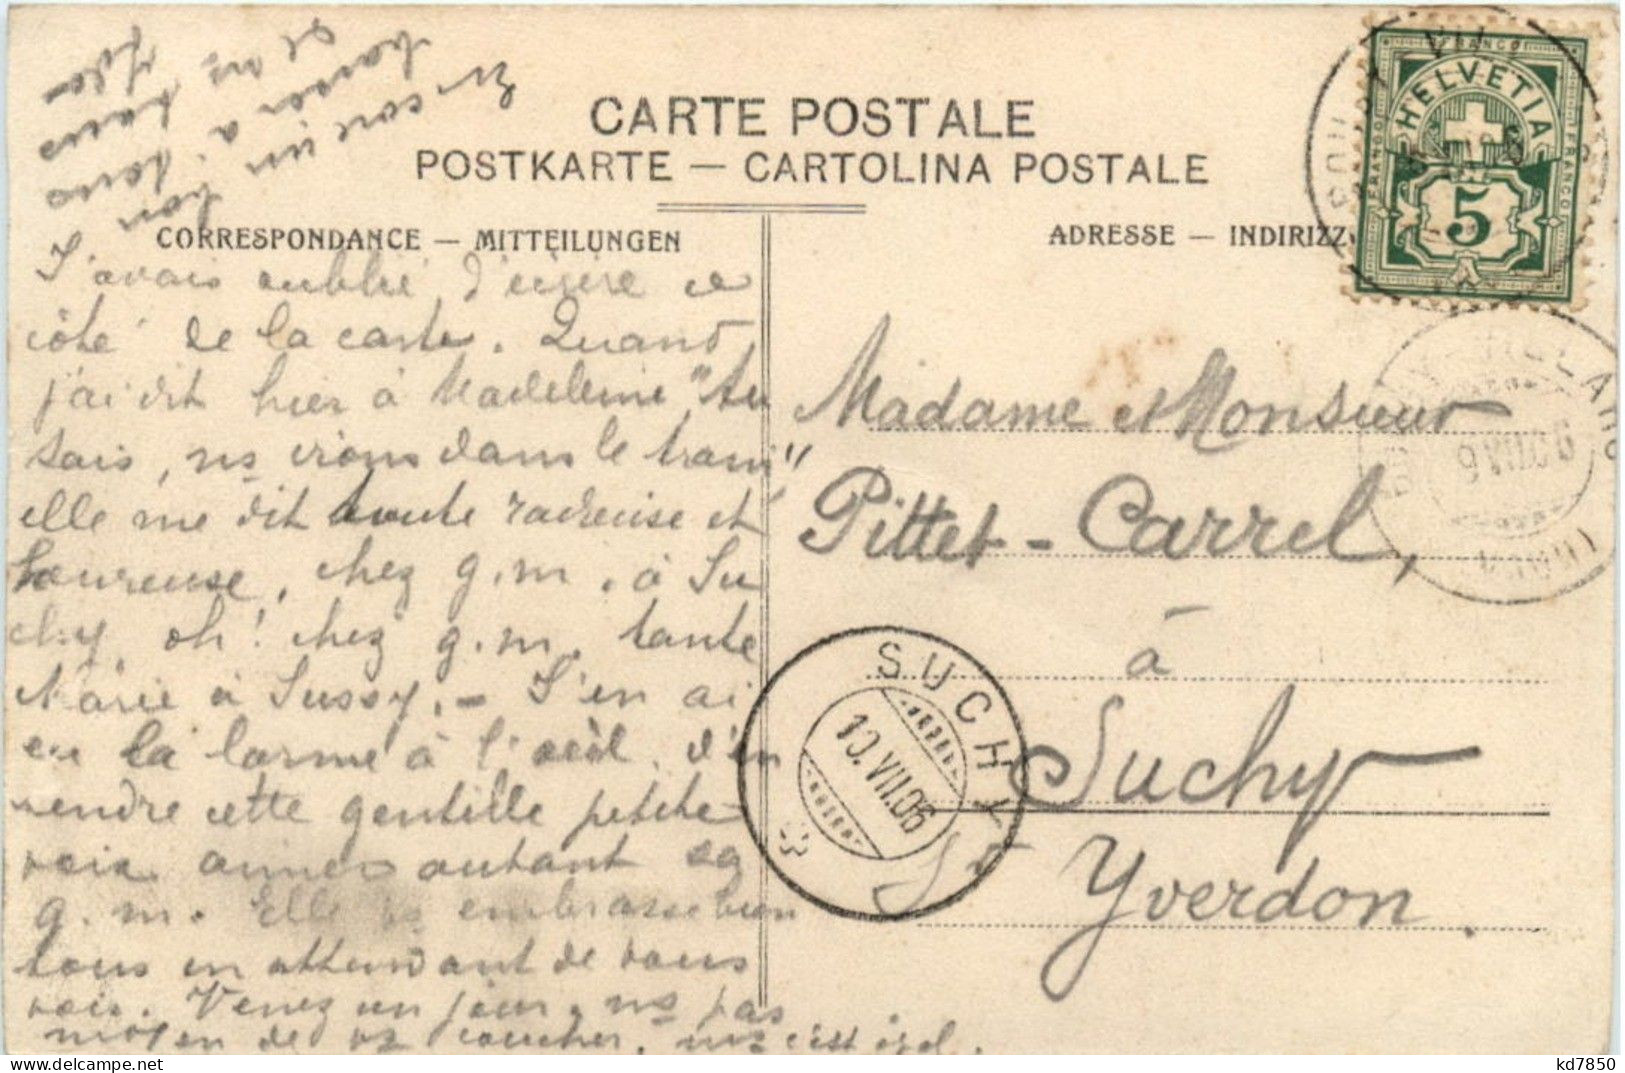 En core un bon
baiser à tous
et ns tous
CARTE POSTALE
POSTKARTE — CARTOLINA POSTALE
CORRESPONDANCE — MITTEILUNGEN
ADRESSE — INDIRIZZ
FRANCO
HELVETIA
FRANCO
FRANCO
5
J'avais oublié d'écrire ce
côté de la carte. Quand
j'ai dit hier à Madeleine "tu
sais, ns irons dans le train"
elle me dit toute radieuse et
heureuse, chez g.m. à Su
chy, oh! chez g.m. tante
Marie à Sussy. – J'en ai
eu la larme à l'œil, d'en
tendre cette gentille petite
voix aimer autant sa
g.m. Elle vs embrasse bien
tous en attendant de vous
voir. Venez un jour, ns pas
moyen de vs coucher, mais c'est égal.
Madame et Monsieur
Pittet-Carrel,
à
Suchy
s. Yverdon.
VILLARD
9 VII 06
SUCHY
10.VII.06
kd7850